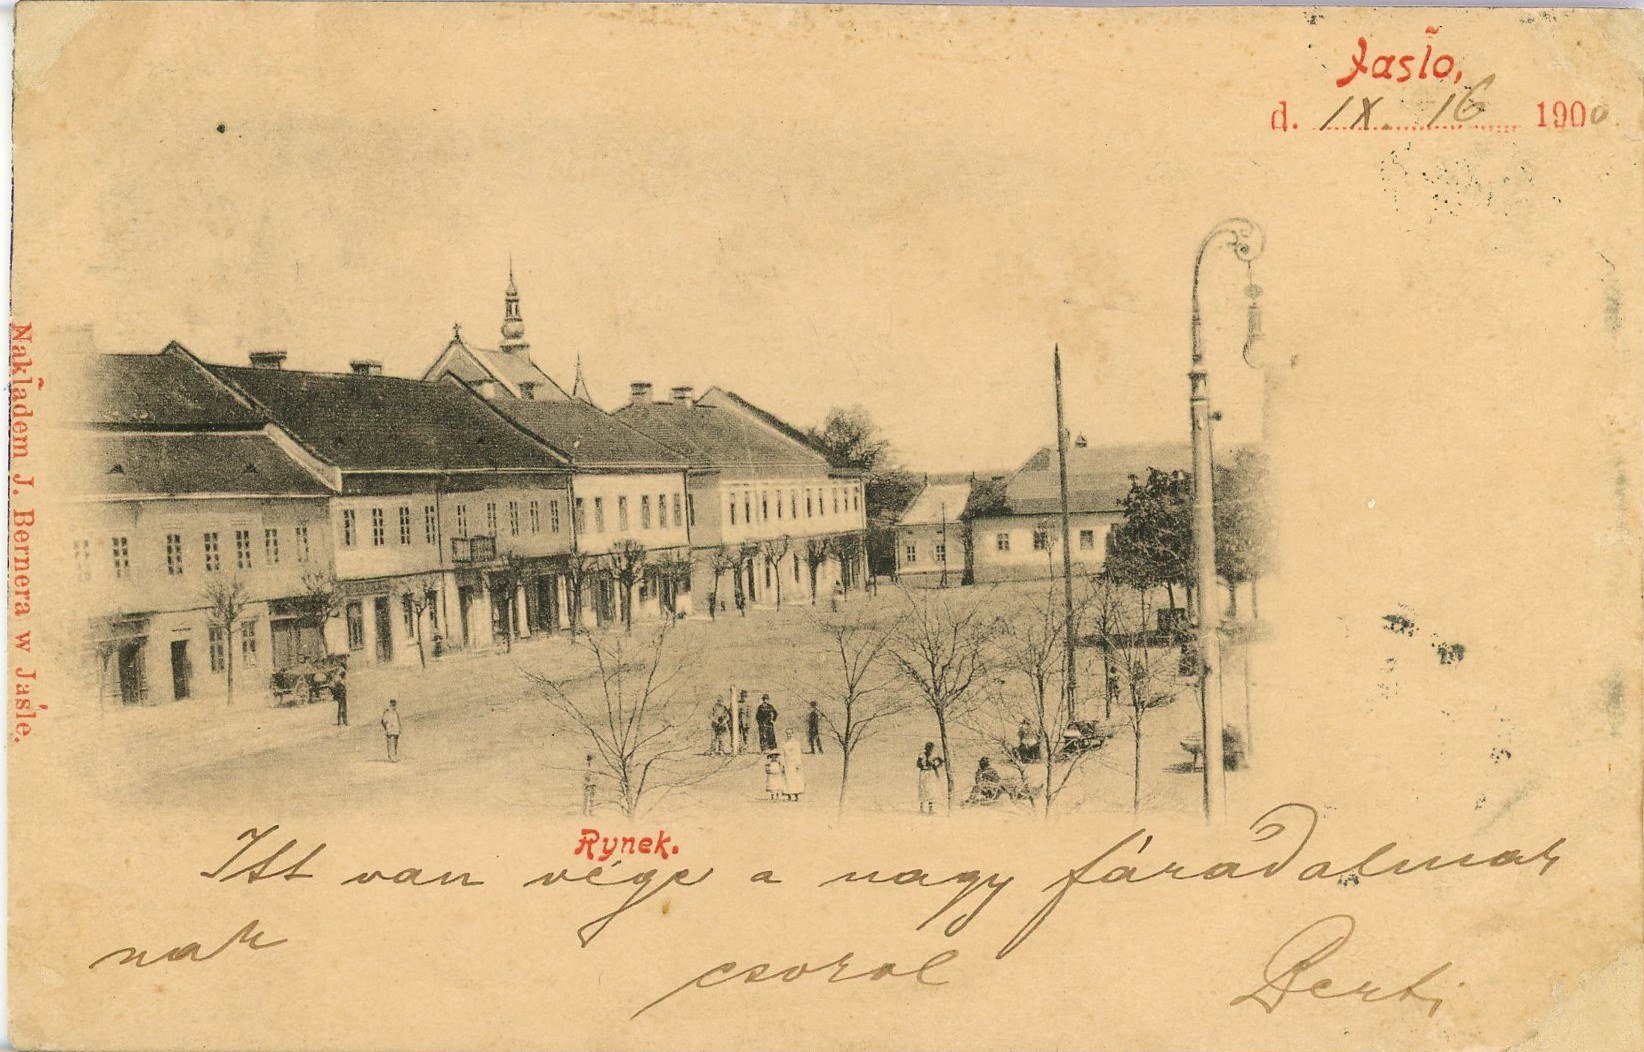 Jasło,
d. IX. 16 1900
Nakładem J. Bernera w Jaśle.
Rynek.
Itt van vége a nagy fáradalmak
nak csokol Berti